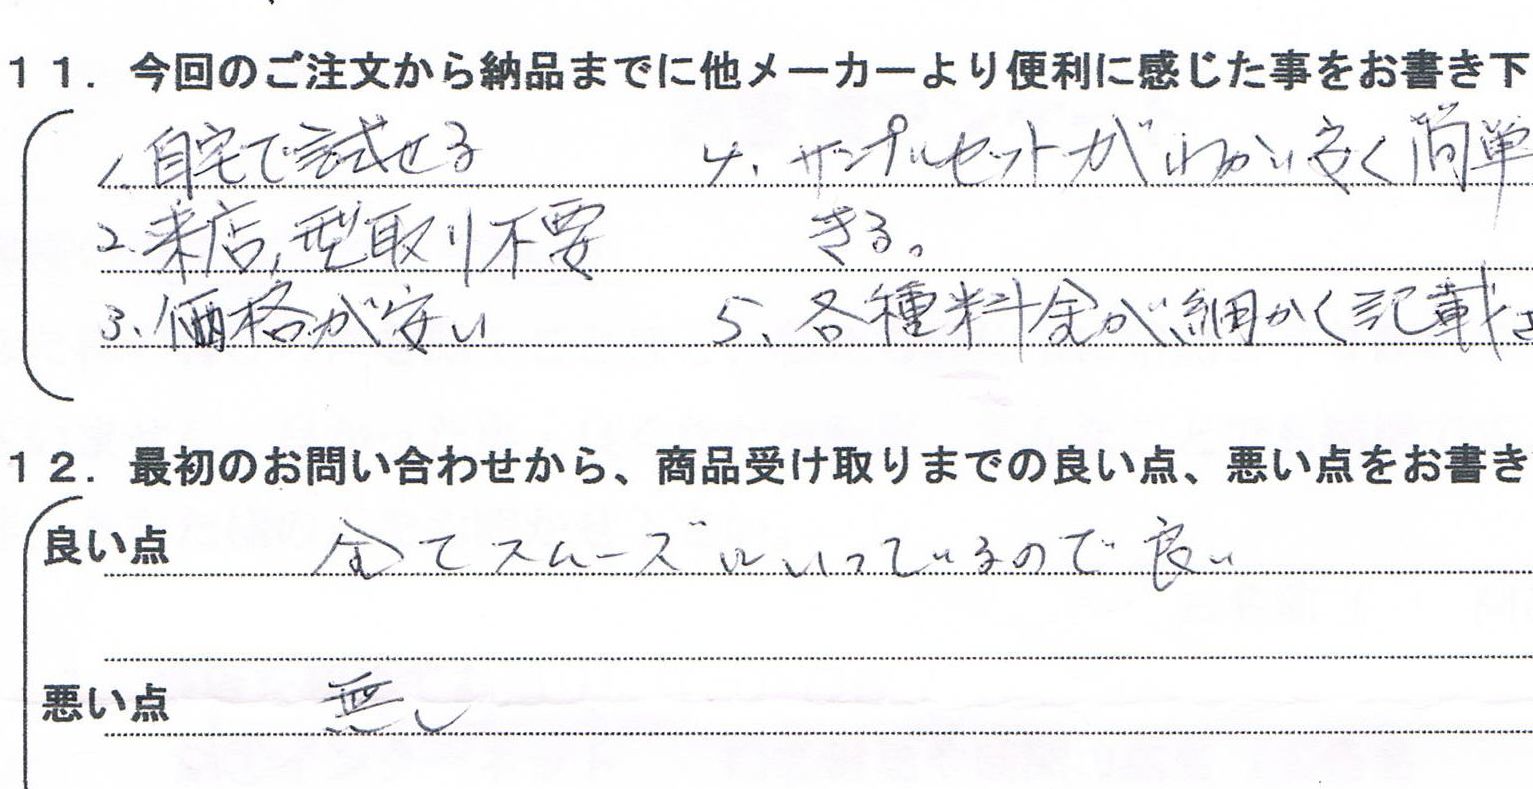 11. 今回のご注文から納品までに他メーカーより便利に感じた事をお書き下
1. 自宅で試せる
2. 来店, 型取り不要
3. 価格が安い
4. サンプルセットがわかい安く簡単
きる。
5. 各種料金が細かく記載さ
12. 最初のお問い合わせから、商品受け取りまでの良い点、悪い点をお書き
良い点 全てスムーズにいっているので良い
悪い点 無し